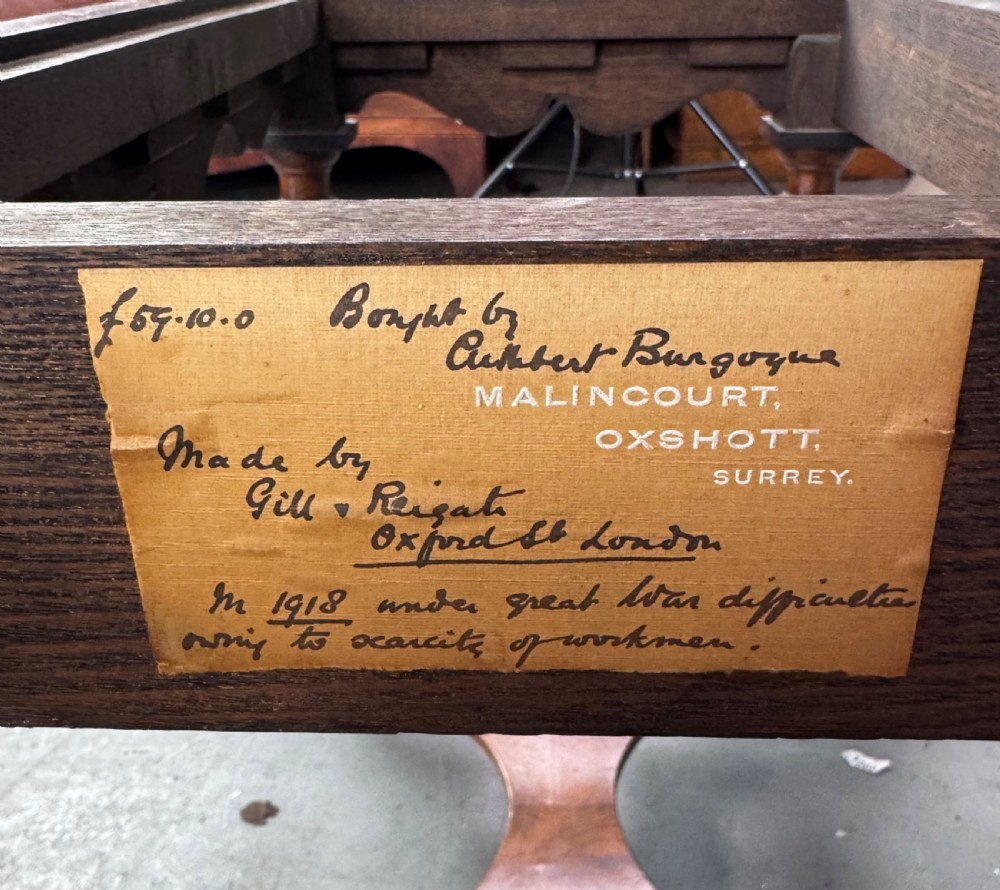 £59.10.0 Bought by
Cuthbert Burgoyne
MALINCOURT,
OXSHOTT,
SURREY.
Made by
Gill & Reigate
Oxford St London
In 1918 under great War difficulties
owing to scarcity of workmen.